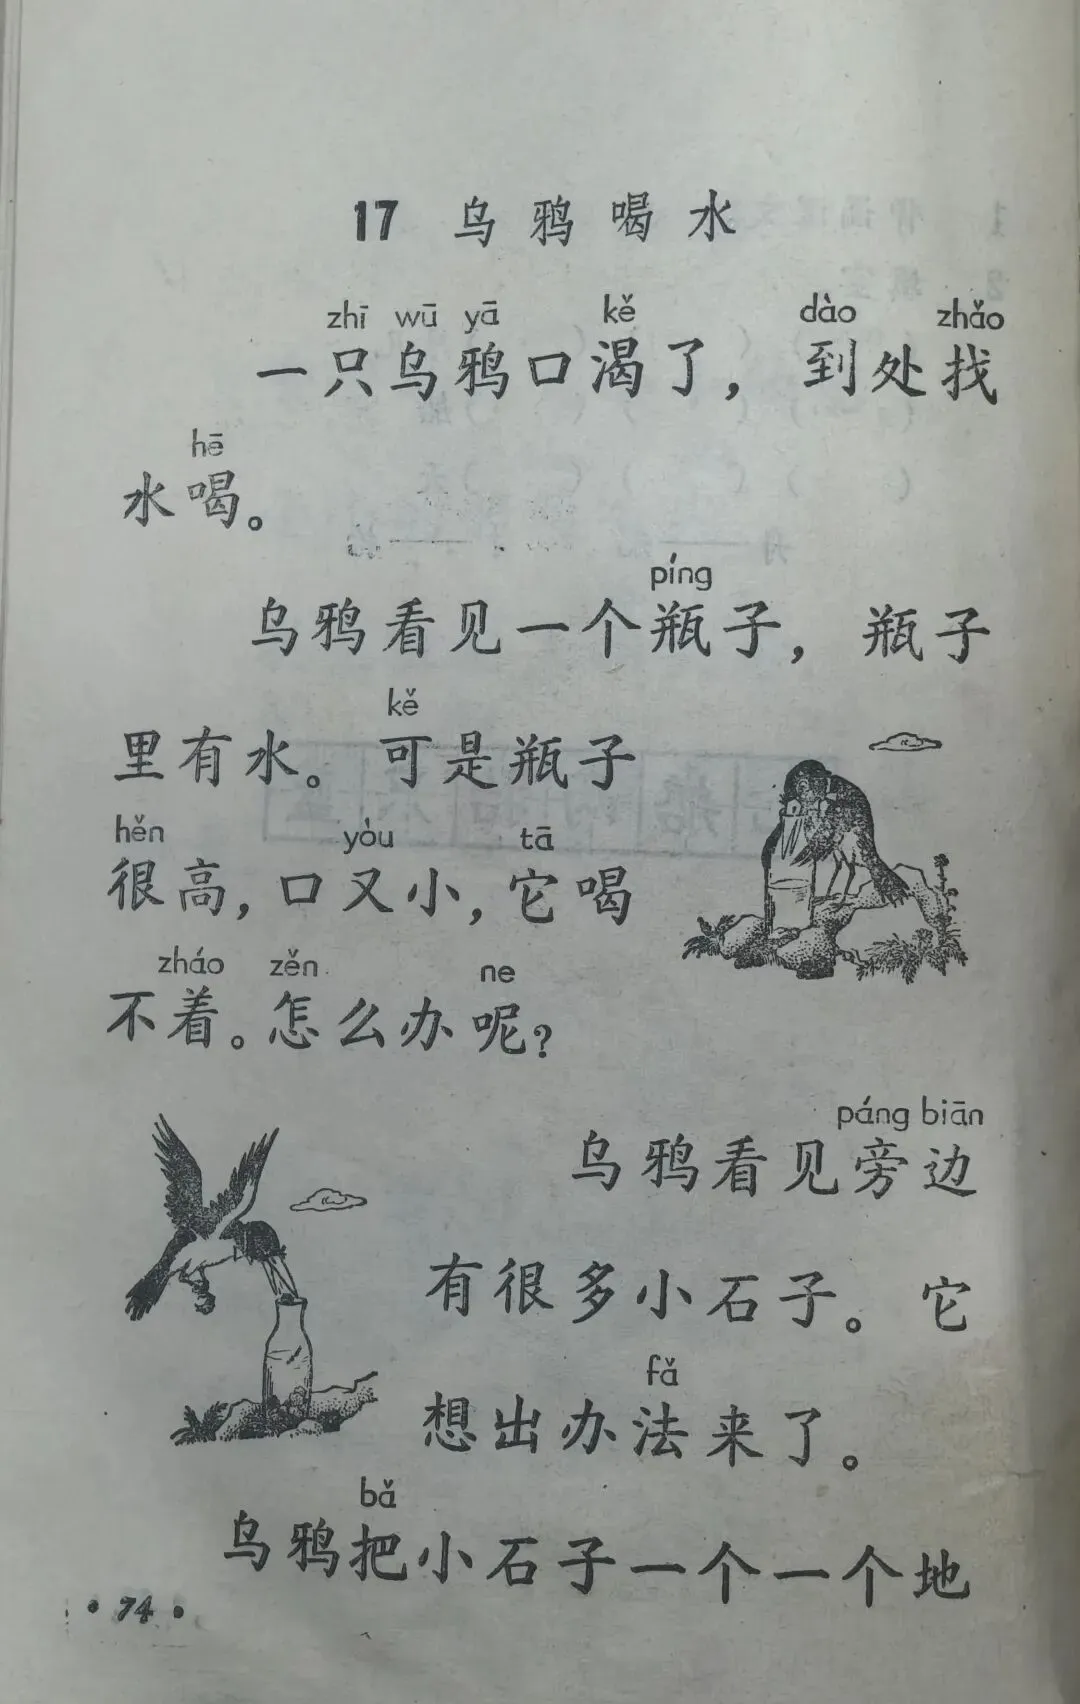 17 乌鸦喝水
zhī wū yā kě dào zhǎo
一只乌鸦口渴了，到处找
hē
水喝。
píng
乌鸦看见一个瓶子，瓶子
kě
里有水。可是瓶子
hěn yòu tā
很高，口又小，它喝
zháo zěn ne
不着。怎么办呢？
páng biān
乌鸦看见旁边
有很多小石子。它
fǎ
想出办法来了。
bǎ
乌鸦把小石子一个一个地
·74·